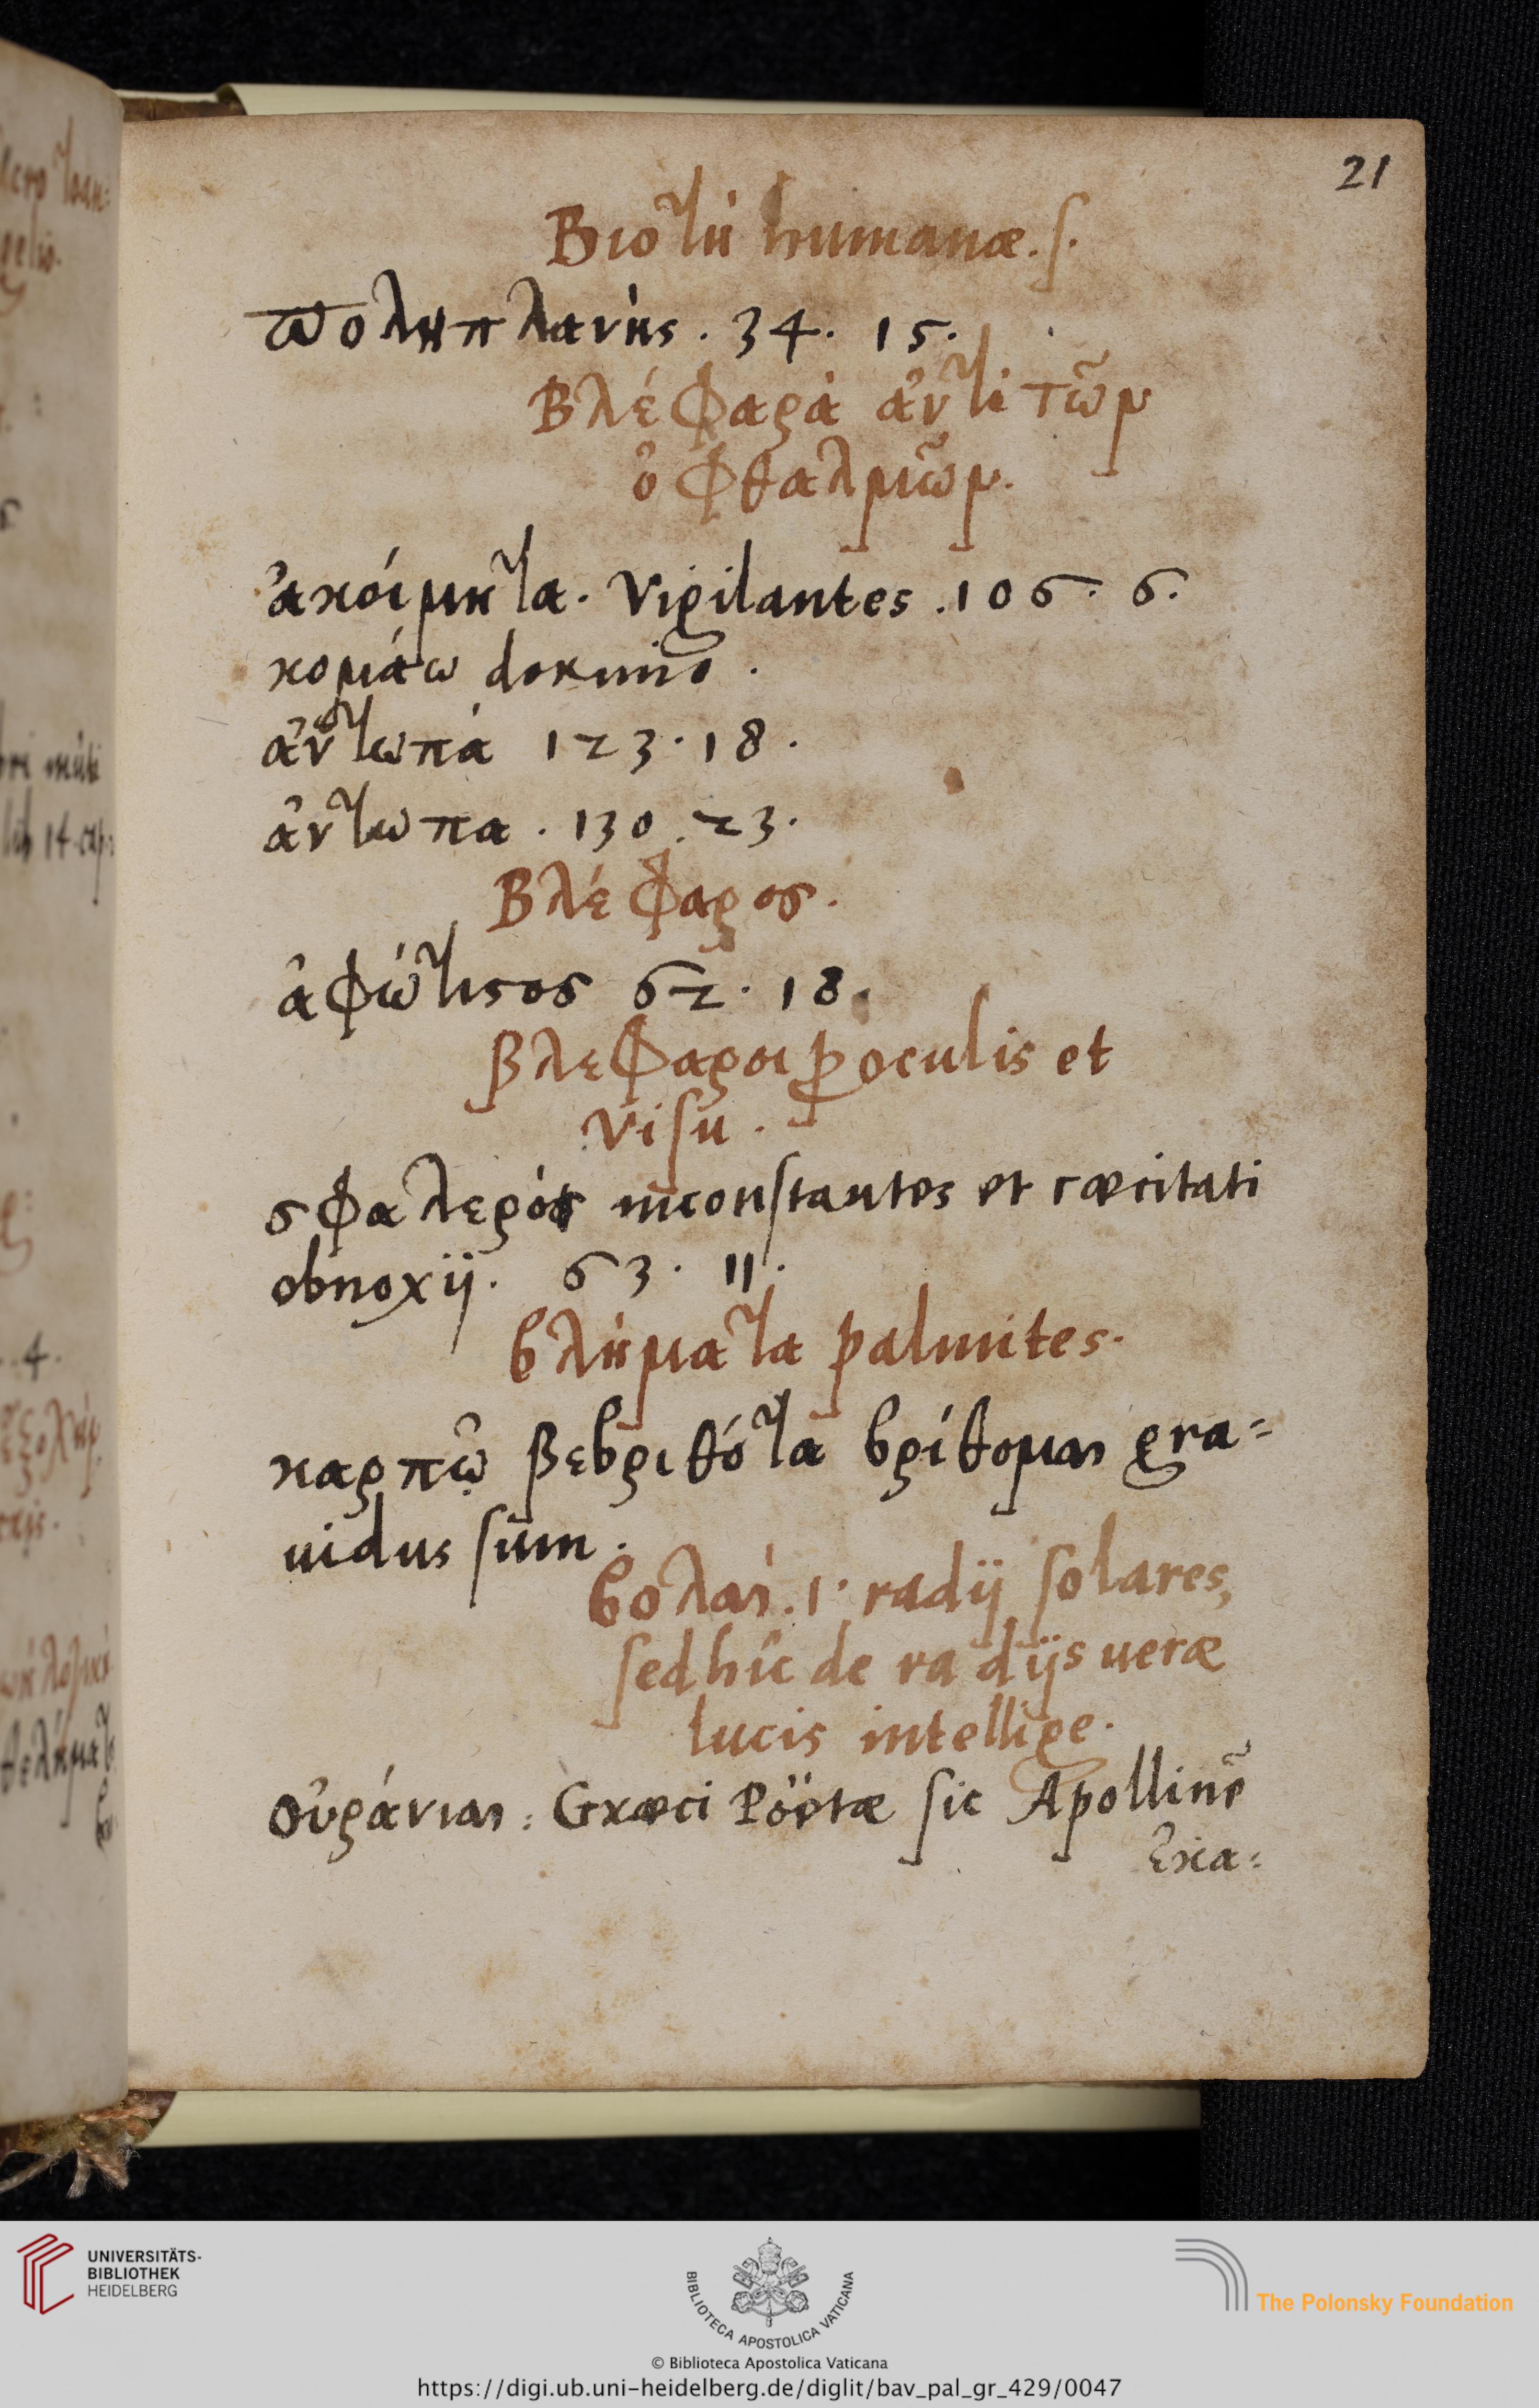 21
Βιοτὴ humanæ. s.
πολυπλανὴς . 34. 15.
Βλέφαρὰ ἀντὶ τῶν
ὀφθαλμῶν.
ἀκοίμητα. Vigilantes . 106. 6.
κομάω dormio .
ἀντωπὰ 123. 18.
ἀντωπα . 130. 23.
Βλέφαρος.
ἀφώτιστος 62. 18.
βλεφαροι p oculis et
visu .
σφαλερὸς inconstantes et cæcitati
obnoxij. 63. 11.
βλήματα palmites.
καρπῷ βεβριθότα βρίθομαι gra=
uidus sum.
βολαὶ. 1. radij solares,
sed hîc de radijs ueræ
lucis intellige.
οὐράνιαι : Græci Pöetæ sic Apollinẽ
ἑκα=
UNIVERSITÄTS-
BIBLIOTHEK
HEIDELBERG
BIBLIOTECA APOSTOLICA VATICANA
The Polonsky Foundation
© Biblioteca Apostolica Vaticana
https://digi.ub.uni-heidelberg.de/diglit/bav_pal_gr_429/0047